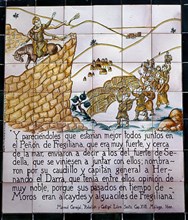 Y pareciéndoles que estarian mejor todos juntos en
el Peñón de Fregiliana, que era muy fuerte, y cerca
de la mar, enviaron á decir y los del fuerte de Se-
della, que se viniesen á juntar con ellos, nombra-
ron por su caudillo y capitán general a Her-
nando el Darra, que tenia entre ellos opinión de
muy noble, porque sus pasados en tiempo de
Moros eran alcaydes y alguaciles de Fregiliana.